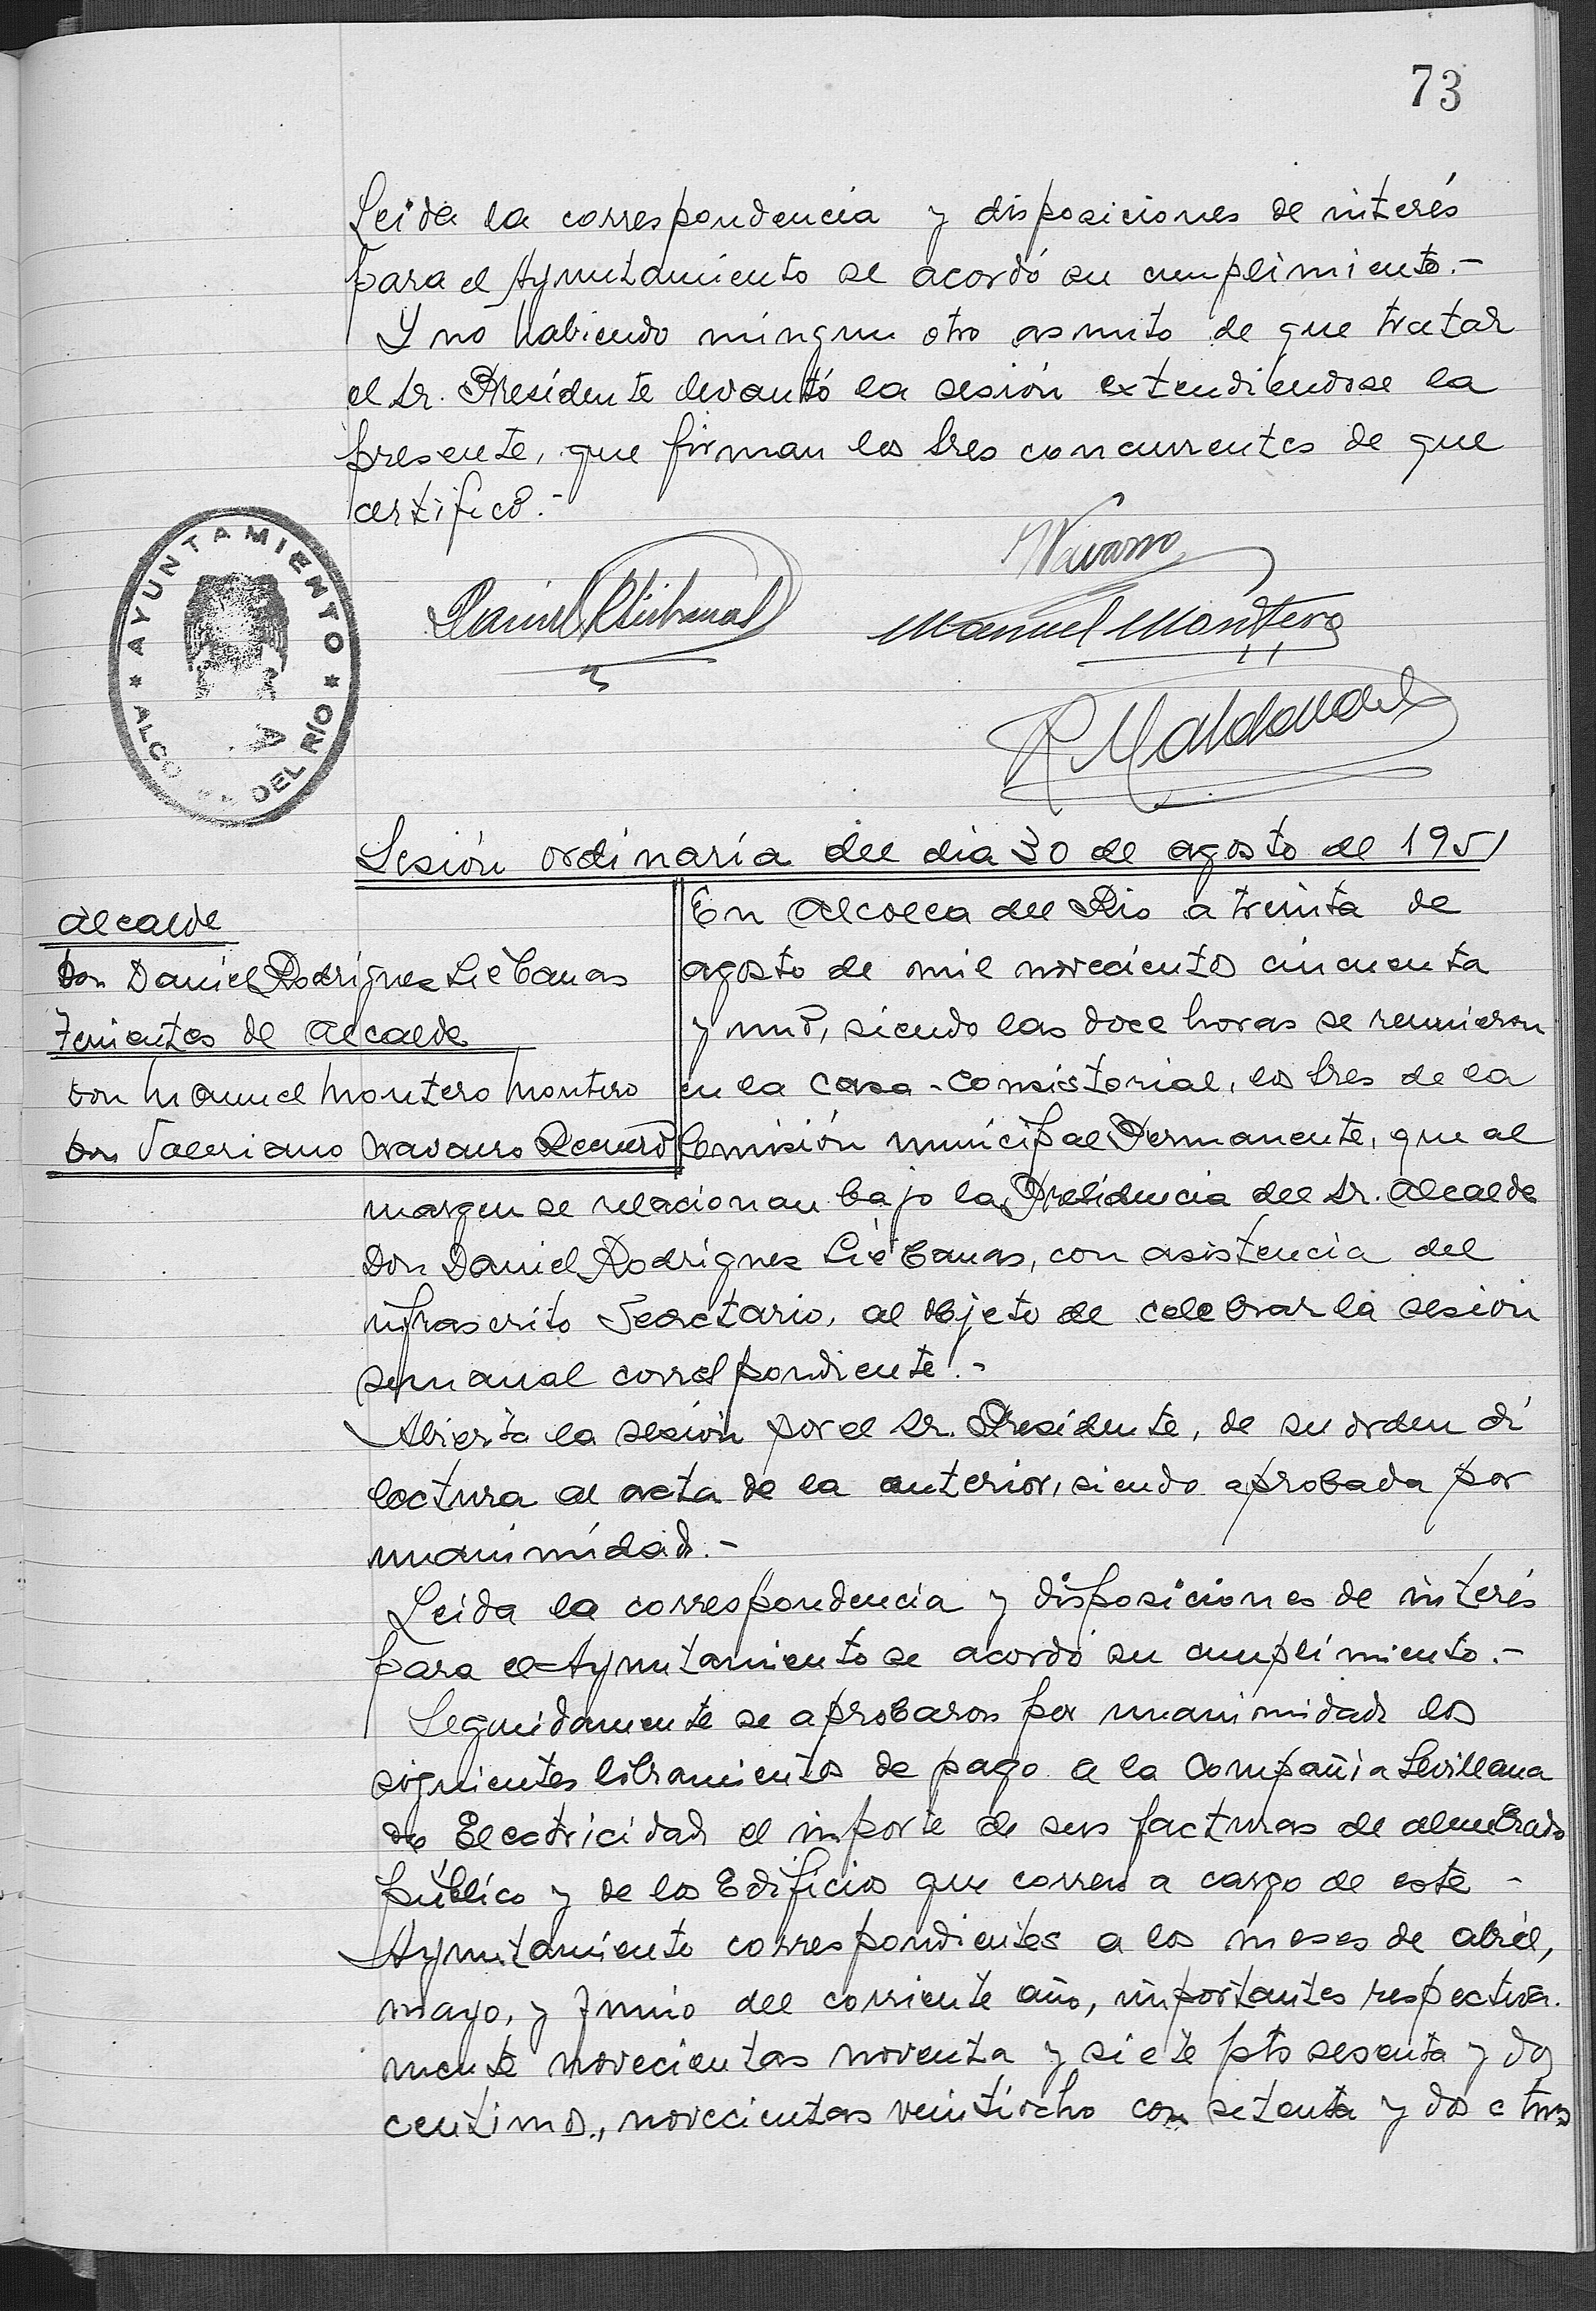 73
Leida la correspondencia y disposiciones de interés
para el Ayuntamiento se acordó su cumplimiento.-
Y no habiendo ningun otro asunto de que tratar
el Sr. Presidente levantó la sesión extendiéndose la
presente, que firman los Sres concurrentes de que
certifico.-
AYUNTAMIENTO
ALCO DEL RÍO
Navarro
Daniel Liébanas
Manuel Montero
R Maldonado
Sesión ordinaria del dia 30 de agosto de 1951
Alcalde
Don Daniel Rodriguez Liébanas
Tenientes de Alcalde
Don Manuel Montero Montero
Don Valeriano Navarro
En Alcolea del Rio a treinta de
agosto de mil novecientos cincuenta
y uno, siendo las doce horas se reunieron
en la Casa-Consistorial, los Sres de la
Comisión Municipal Permanente, que al
margen se relacionan bajo la Presidencia del Sr. Alcalde
Don Daniel Rodriguez Liébanas, con asistencia del
infrascrito Secretario, al objeto de celebrar la sesión
semanal correspondiente.-
Abierta la sesión por el Sr. Presidente, de su orden dí
lectura al acta de la anterior, siendo aprobada por
unanimidad.-
Leida la correspondencia y disposiciones de interés
para el Ayuntamiento se acordó su cumplimiento.-
Seguidamente se aprobaron por unanimidad los
siguientes libramientos de pago a la Compañia Sevillana
de Electricidad el importe de sus facturas de alumbrado
público y de los Edificios que corren a cargo de este -
Ayuntamiento correspondientes a los meses de abril,
mayo, y Junio del corriente año, importantes respectiva-
mente novecientas noventa y siete pts sesenta y dos
centimos., novecientas veintiocho con setenta y dos ctms